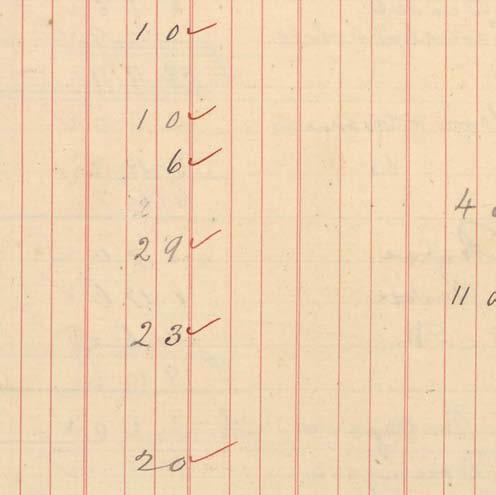 10
10
6
2
4
29
11
23
20